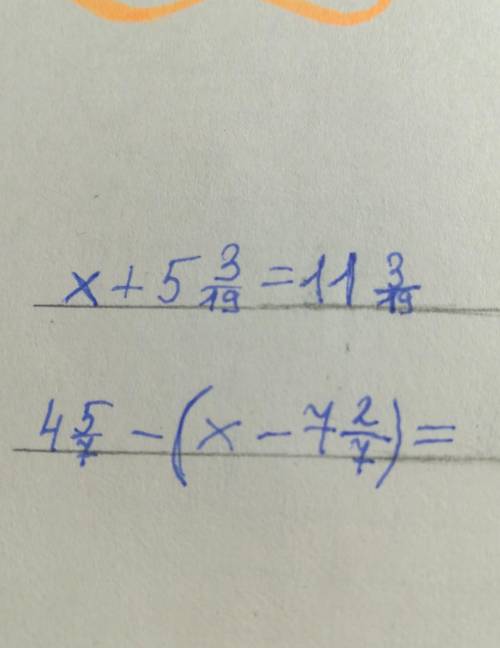 x + 5 3/19 = 11 3/19
4 5/7 - (x - 7 2/7) =